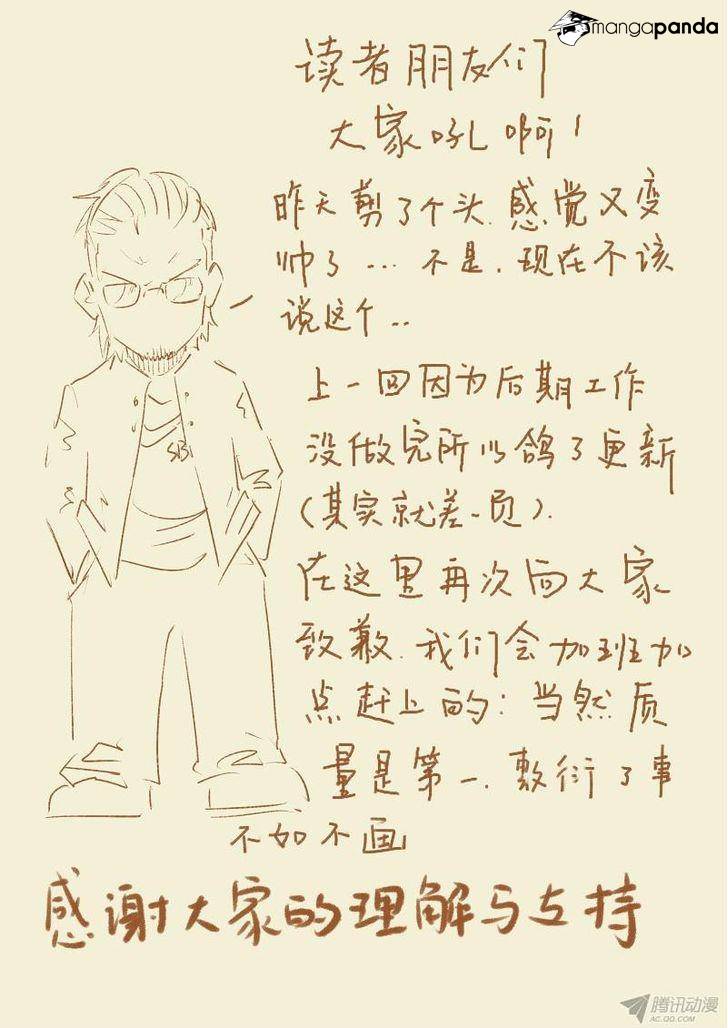 mangapanda
读者朋友们
大家吼啊!
昨天剪了个头,感觉又变
帅了...不是,现在不该
说这个..
上一回因为后期工作
没做完所以鸽了更新
(其实就差一页).
在这里再次向大家
致歉.我们会加班加
点赶上的:当然质
量是第一.敷衍了事
不如不画
感谢大家的理解与支持
腾讯动漫
AC.QQ.COM